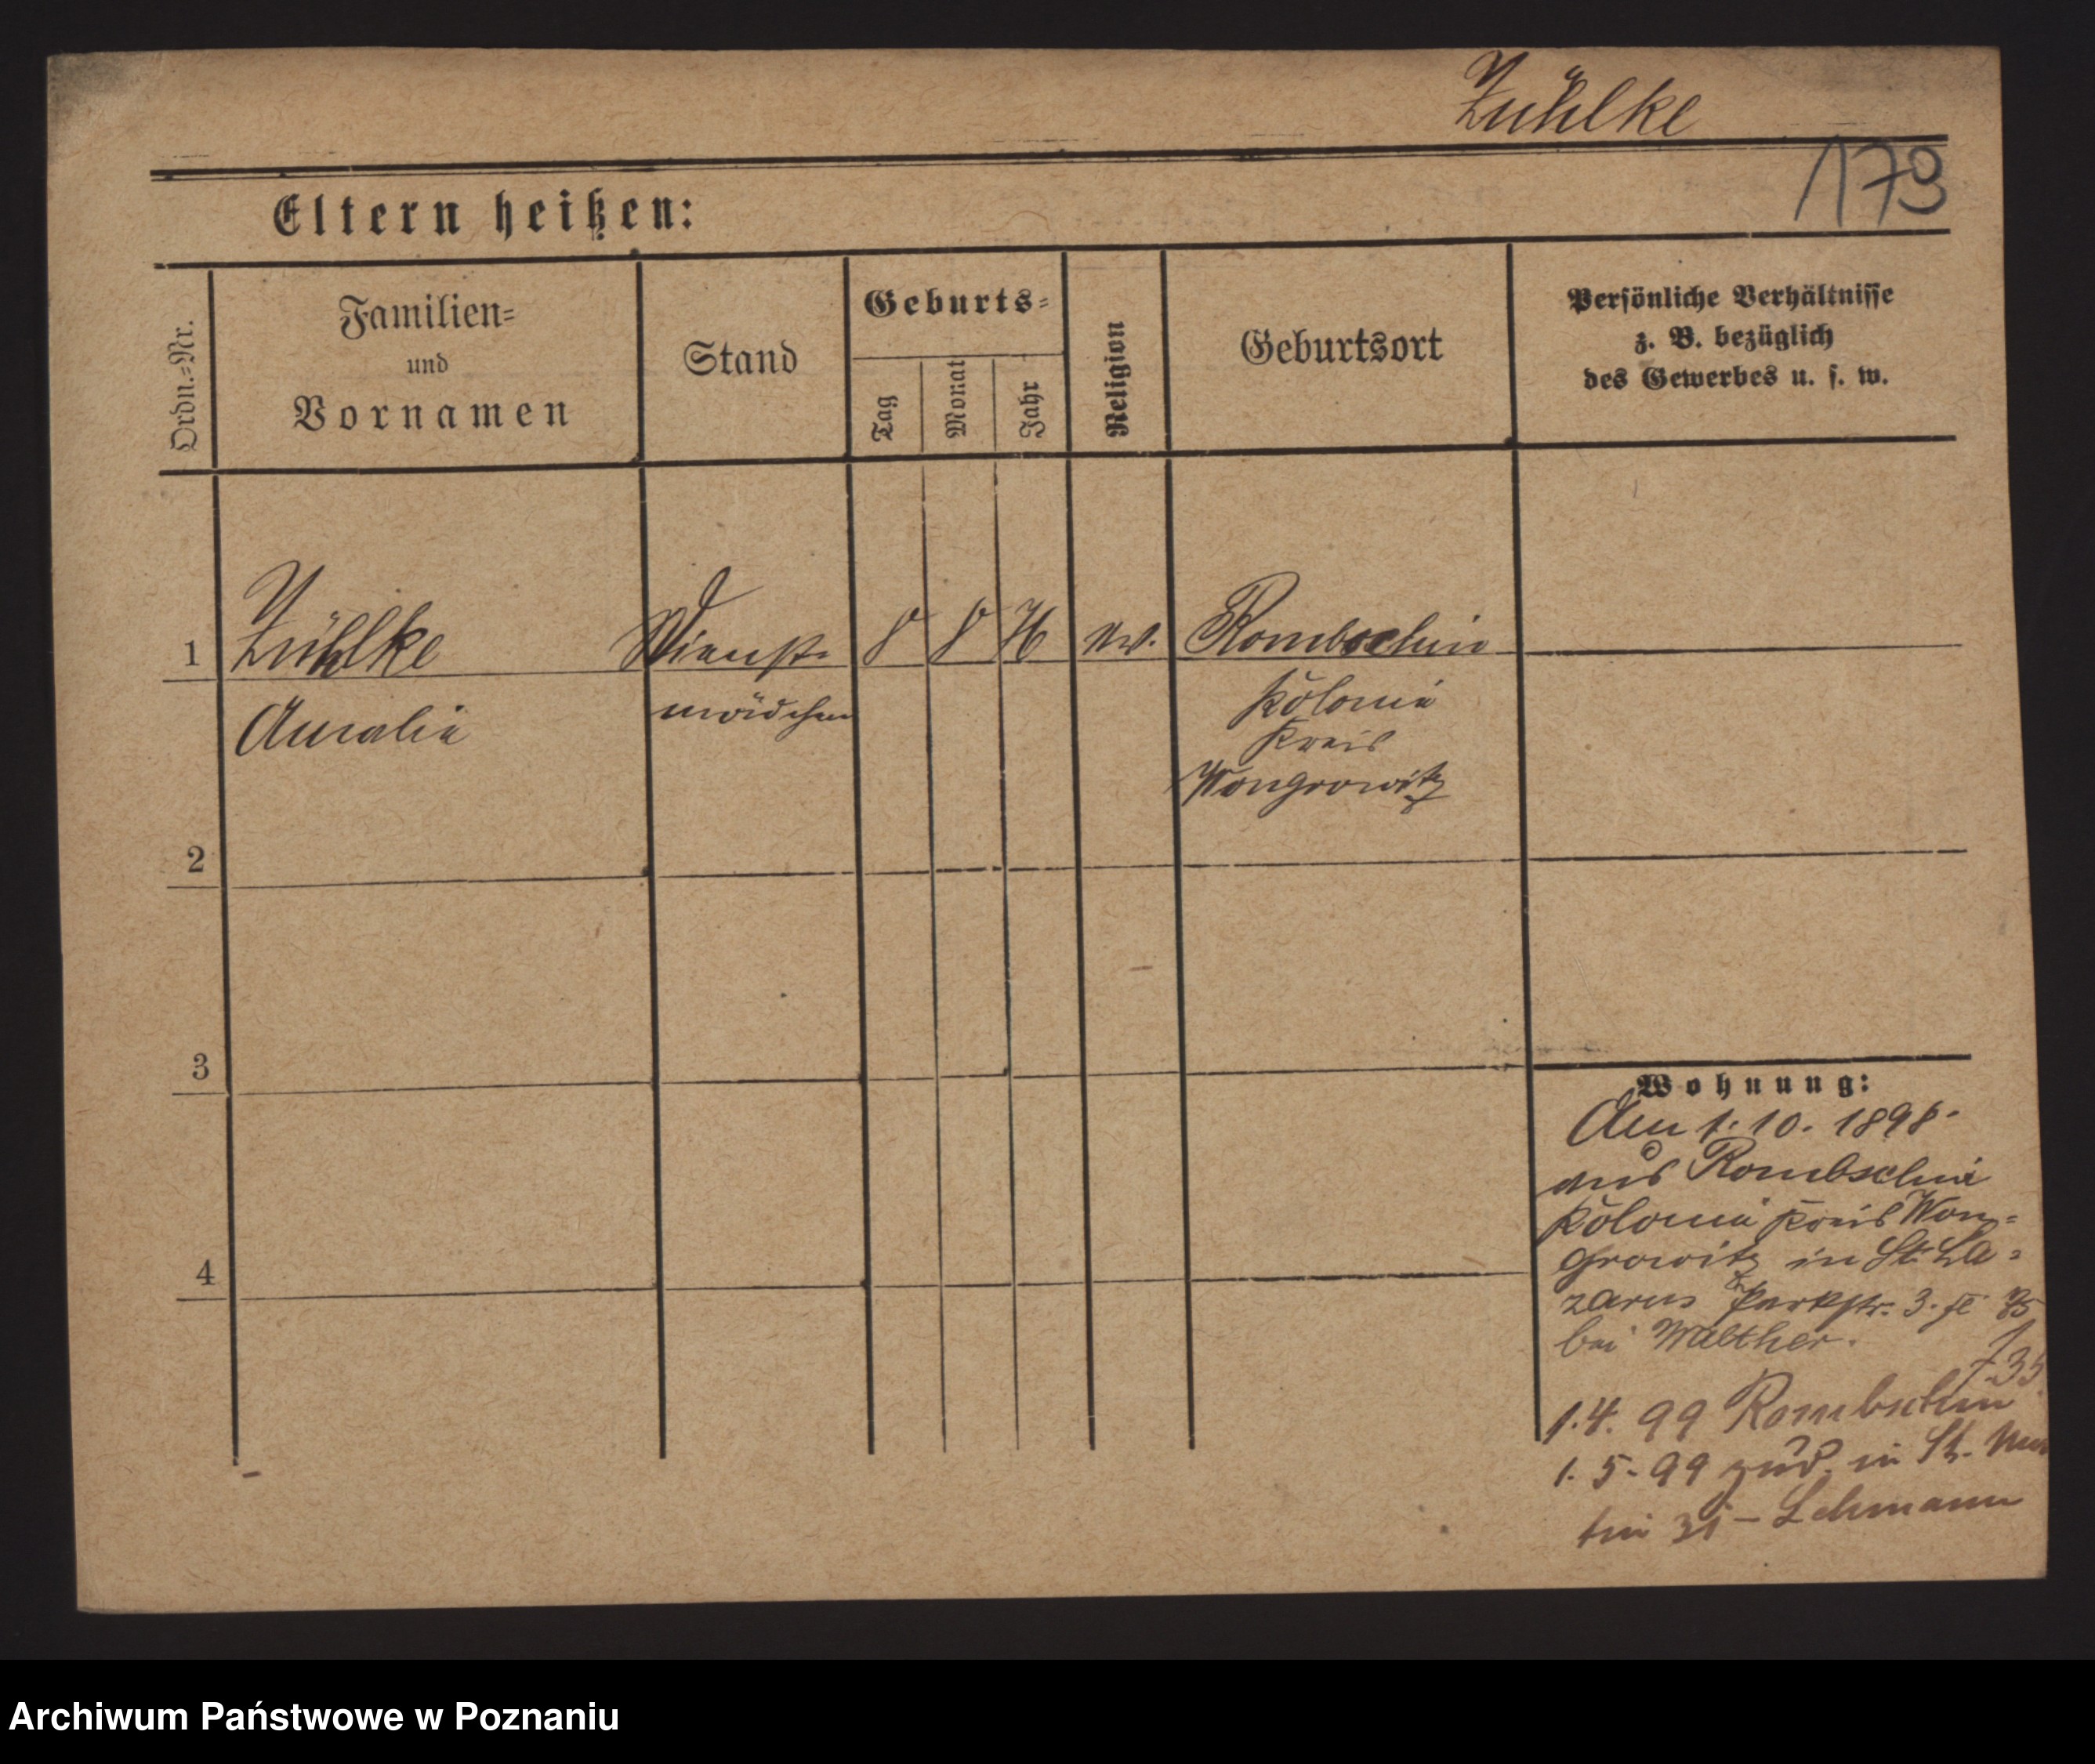 Zühlke
173
Eltern heißen:
Ordn.-Nr.
Familien-
und
Vornamen
Stand
Geburts-
Tag
Monat
Jahr
Religion
Geburtsort
Persönliche Verhältnisse
z. B. bezüglich
des Gewerbes u. s. w.
1 Zühlke Dienst- 8 8 76 ev. Rombschin
Amalie mädchen Kolonie
Kreis
Wongrowitz
2
3
4
Wohnung:
Am 1.10. 1898.
aus Rombschin
Kolonie Kreis Won-
growitz in St. La-
zarus Parkstr. 3.
bei Walther.
1.4. 99 Rombschin
1.5. 99 zurück in St.
tin 31 - Lehmann
Archiwum Państwowe w Poznaniu